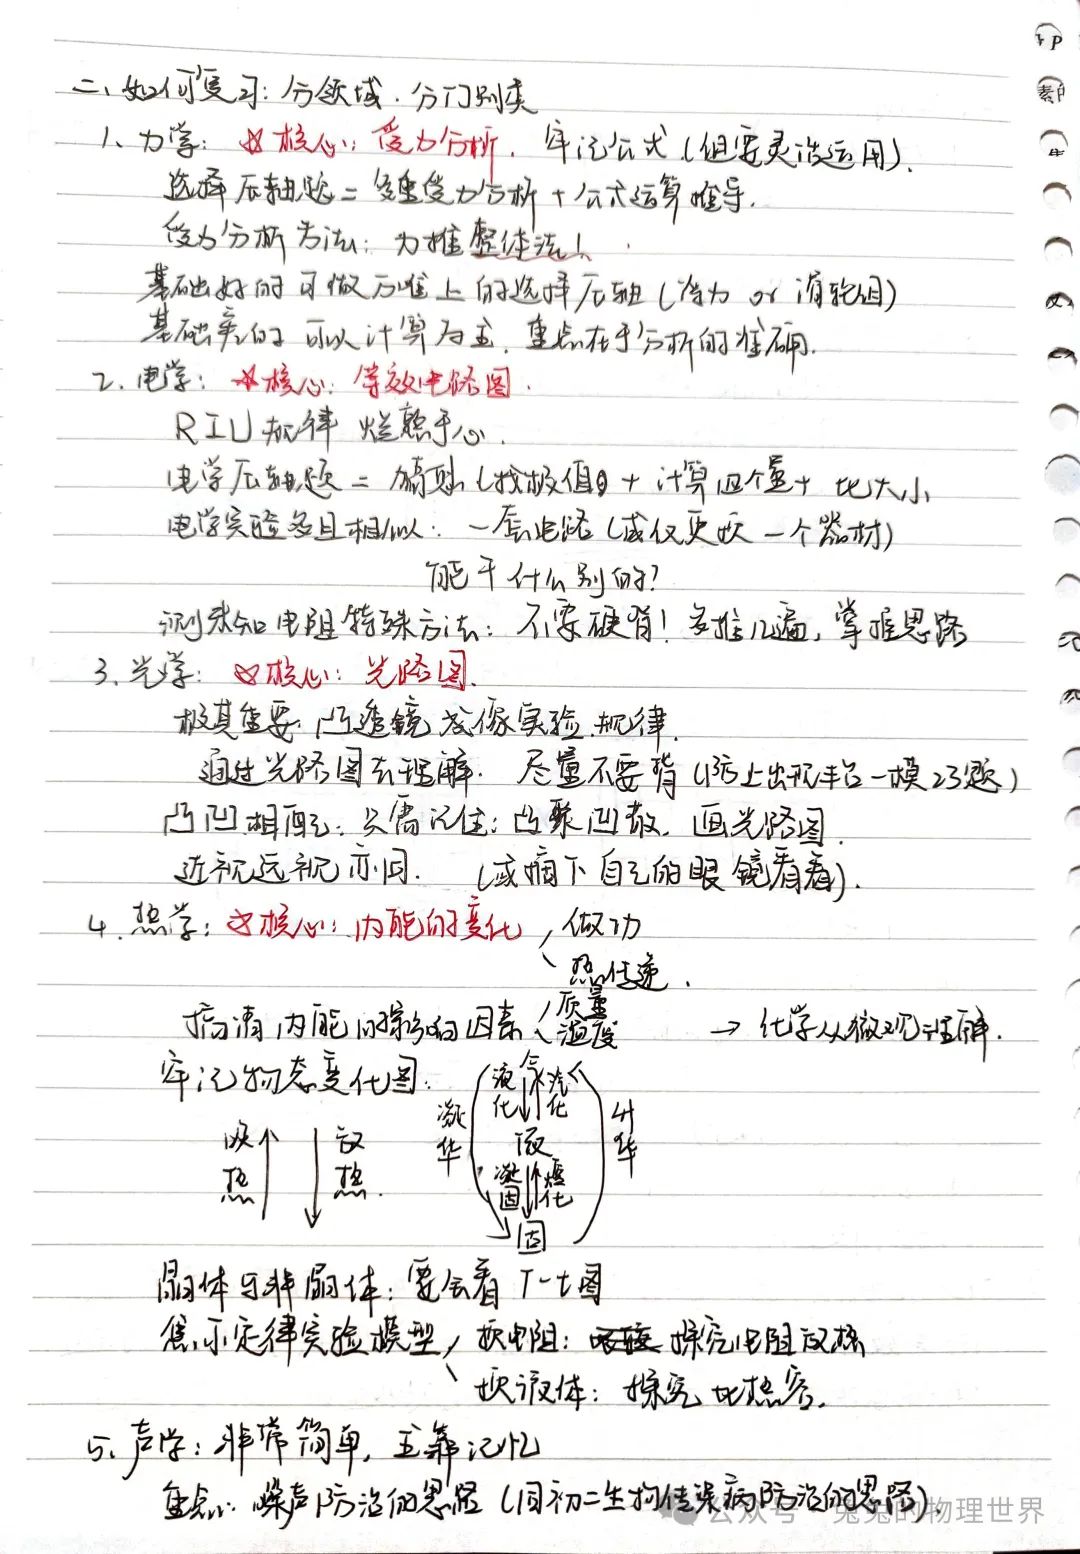 二、如何复习:分领域.分门别类
1、力学: ☆核心:受力分析. 牢记公式(但要灵活运用).
选择压轴题=多重受力分析+公式运算推导.
受力分析方法:力推整体法!
基础好的可做历准上的选择压轴(浮力 or 滑轮组)
基础差的可以计算为主.重点在于分析的准确.
2.电学: ☆核心:等效电路图.
RIU规律 烂熟于心.
电学压轴题=原则(找极值)+计算四个量+比大小
电学实验多且相似:一套电路(或仅更改一个器材)
能干什么别的?
测未知电阻特殊方法:不要硬背!多推几遍,掌握思路
3、光学: ☆核心:光路图.
极其重要:凸透镜成像实验.规律.
通过光路图去理解. 尽量不要背(防上出现丰台一模23题)
凸凹相配:只需记住:凸聚凹散.画光路图.
近视远视亦同. (或摘下自己的眼镜看看).
4.热学: ☆核心:内能的变化 做功
热传递.
搞清内能的影响因素 质量
温度 → 化学从微观理解.
牢记物态变化图:
气
液化 汽化
凝华 升华
吸热 放热
液
凝固 熔化
固
晶体与非晶体:要会看T-t图
焦耳定律实验模型 换电阻: 探究电阻放热
换液体: 探究比热容.
5、声学:非常简单,主靠记忆
重点:噪声防治的思路(同初二生物传染病防治的思路).
公众号 兔兔的物理世界